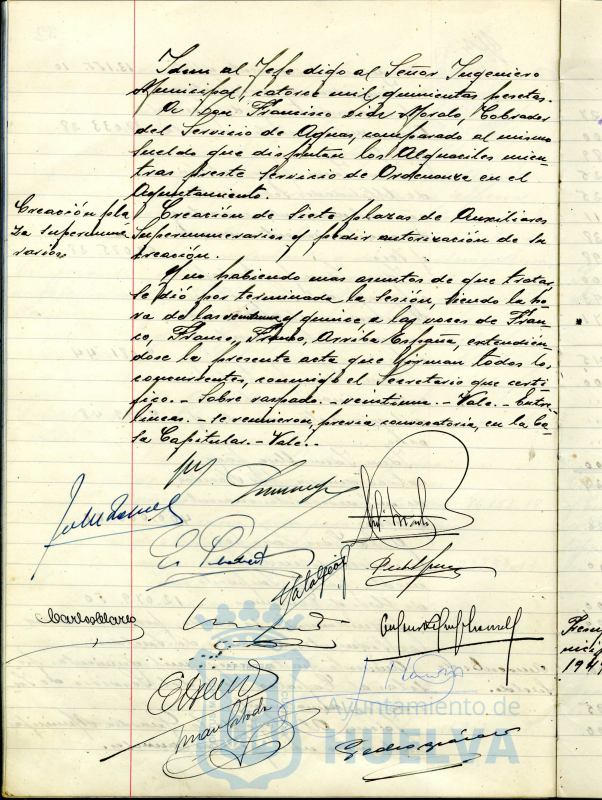 Idem al Jefe digo al Señor Ingeniero
Municipal, catorce mil quinientas pesetas.
A Don Francisco Díaz Morato, Cobrador
del Servicio de Aguas, comparado al mismo
sueldo que disfrutan los Alguaciles mien-
tras preste servicio de Ordenanza en el
Ayuntamiento.
Creación pla
za supernume
rarios
Creación de siete plazas de Auxiliares
Supernumerarios y pedir autorización de su
creación.
Y no habiendo más asuntos de que tratar,
se dió por terminada la sesión, siendo la ho-
ra de las veintiuna y quince a las voces de Fran-
co, Franco, Franco, Arriba España, extendien-
dose la presente acta que firman todos los
concurrentes, conmigo el Secretario que certi-
fico.- Sobre raspado.- veintiuna.- Vale.- Entre
lineas.- se reunieron, previa convocatoria, en la Ca-
sa Capitular.- Vale.-
Ayuntamiento de
HUELVA